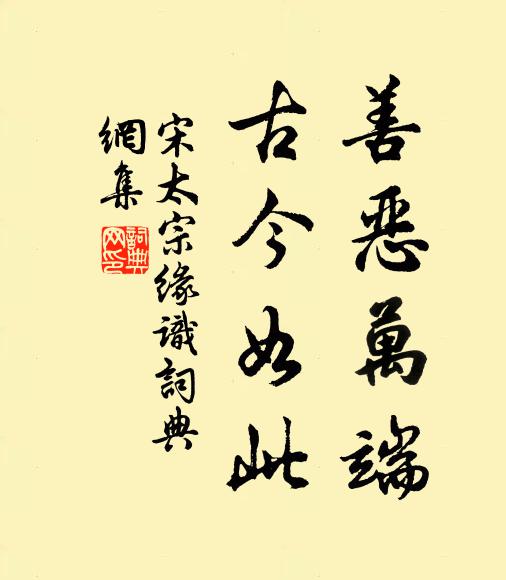 善惡萬端
古今如此
宋太宗緣識詞典
網集
詞典
網印